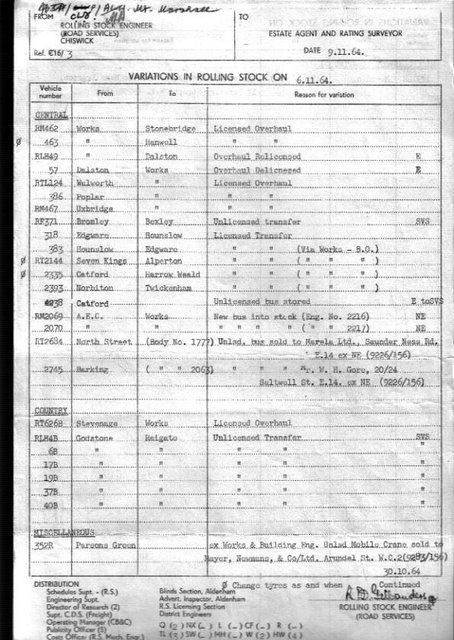 FROM
ROLLING STOCK ENGINEER
(ROAD SERVICES)
CHISWICK
Ref. E16/3
TO
ESTATE AGENT AND RATING SURVEYOR
DATE 9.11.64.
VARIATIONS IN ROLLING STOCK ON 6.11.64.
Vehicle number From To Reason for variation
CENTRAL
RM462 Works Stonebridge Licensed Overhaul
ø 463 " Hanwell " "
RLH49 " Dalston Overhaul Relicensed E
57 Dalston Works Overhaul Delicensed E
RTL124 Walworth " Licensed Overhaul
386 Poplar " " "
RM467 Uxbridge " " "
RF371 Bromley Bexley Unlicensed transfer SVS
318 Edgware Hounslow Licensed Transfer
383 Hounslow Edgware " " (Via Works - S.O.)
ø RT2144 Seven Kings Alperton " " ( " " " )
ø 2335 Catford Harrow Weald " " ( " " " )
2393 Norbiton Twickenham " " ( " " " )
4238 Catford Unlicensed bus stored E toSVS
RM2069 A.E.C. Works New bus into stock (Eng. No. 2216) NE
2070 " " " " " " ( " " 2217) NE
RT2684 North Street (Body No. 1777) Unlsd. bus sold to Ltd., Saunder Ness Rd.
E.14 ex NE (9226/156)
2745 Barking ( " " 2063) " " " " Mr. W. H. Gore, 20/24
Saltwell St. E.14. ex NE (9226/156)
COUNTRY
RT626B Stevenage Works Licensed Overhaul
RLH4B Godstone Reigate Unlicensed Transfer SVS
6B " " " " "
17B " " " " "
19B " " " " "
37B " " " " "
40B " " " " "
MISCELLANEOUS
352R Parsons Green ex Works & Building Eng. Unlsd Mobile Crane sold to
Mayer, Newmans, & Co/Ltd. Arundel St. W.C.2(9283/156)
30.10.64
ø Change tyres as and when Continued
DISTRIBUTION
Schedules Supt. - (R.S.)
Engineering Supt.
Director of Research (2)
Supt. C.D.S. (Freight)
Operating Manager (CB&C)
Publicity Officer (S)
Costs Officer (R.S. Mech. Engr.)
Blinds Section, Aldenham
Advert. Inspector, Aldenham
R.S. Licensing Section
District Engineers
ROLLING STOCK ENGINEER
(ROAD SERVICES)